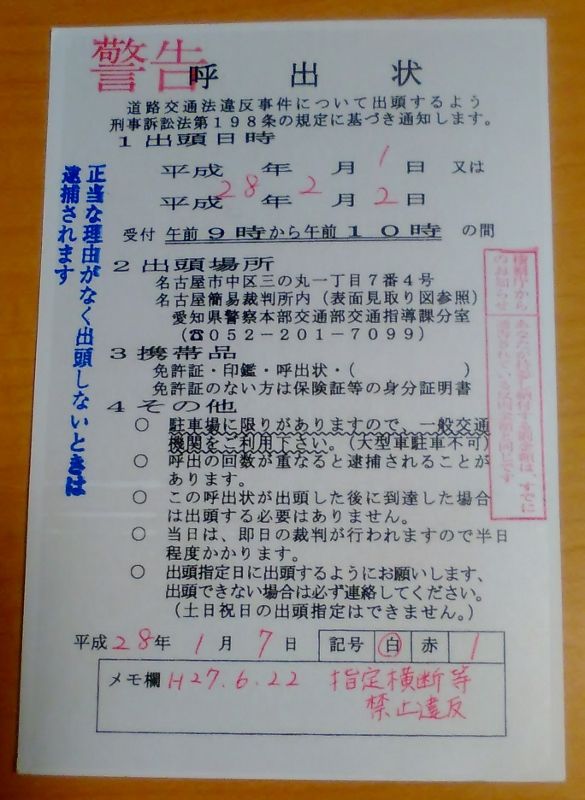 警告
呼出状
道路交通法違反事件について出頭するよう
刑事訴訟法第198条の規定に基づき通知します。
1 出頭日時
平成 年 月 1 日 又は
平成 28 年 2 月 2 日
受付 午前9時から午前10時 の間
2 出頭場所
名古屋市中区三の丸一丁目7番4号
名古屋簡易裁判所内(表面見取り図参照)
愛知県警察本部交通部交通指導課分室
(☎052-201-7099)
3 携帯品
免許証・印鑑・呼出状・( )
免許証のない方は保険証等の身分証明書
4 その他
○ 駐車場に限りがありますので、一般交通
機関をご利用下さい。(大型車駐車不可)
○ 呼出の回数が重なると逮捕されることが
あります。
○ この呼出状が出頭した後に到達した場合
は出頭する必要はありません。
○ 当日は、即日の裁判が行われますので半日
程度かかります。
○ 出頭指定日に出頭するようにお願いします、
出頭できない場合は必ず連絡してください。
(土日祝日の出頭指定はできません。)
平成28年 1月 7日 記号 白 赤 1
メモ欄 H27.6.22 指定横断等
禁止違反
正当な理由がなく出頭しないときは
逮捕されます
検察庁から
のお知らせ